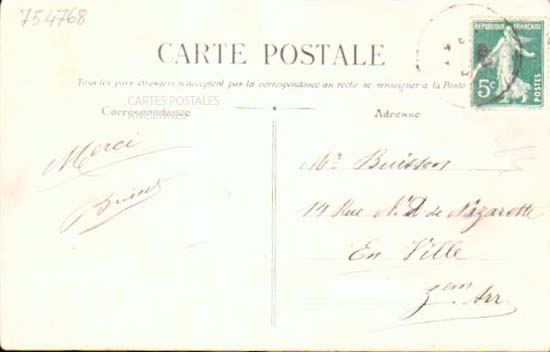 754768
RÉPUBLIQUE FRANÇAISE
5c
POSTES
CARTE POSTALE
Tous les pays étrangers n'acceptent pas la correspondance au recto se renseigner à la Poste
CARTES POSTALES
ANCIENNES
Correspondance
Adresse
Merci
Mr Buisson
Rue N. D de
En Ville
3em Arr